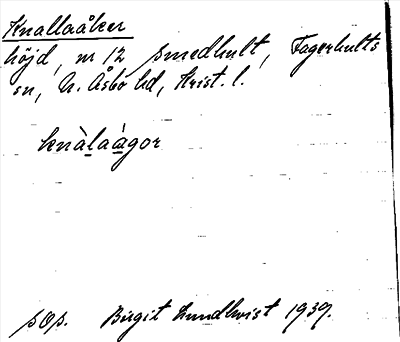 Knallaåker
höjd, nr 12 Smedhult, Fagerhults
sn, N. Åsbo hd, Krist. l.
knàlaágor
sOp. Birgit Lundkvist 1939.